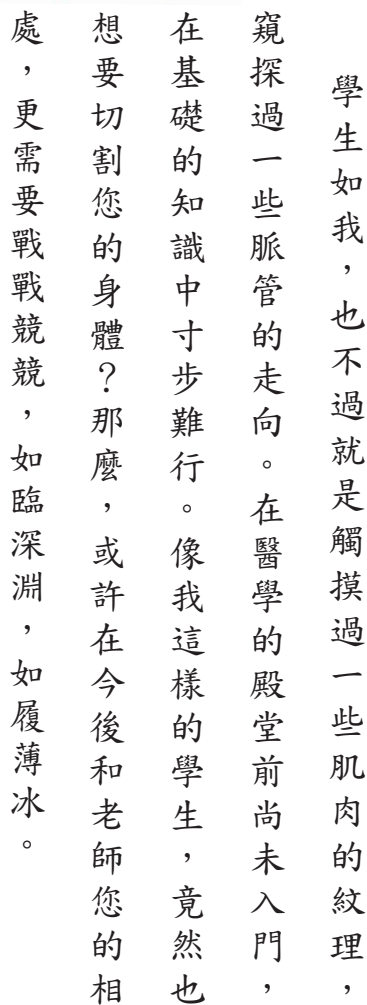 學生如我，也不過就是觸摸過一些肌肉的紋理，
窺探過一些脈管的走向。在醫學的殿堂前尚未入門，
在基礎的知識中寸步難行。像我這樣的學生，竟然也
想要切割您的身體？那麼，或許在今後和老師您的相
處，更需要戰戰競競，如臨深淵，如履薄冰。